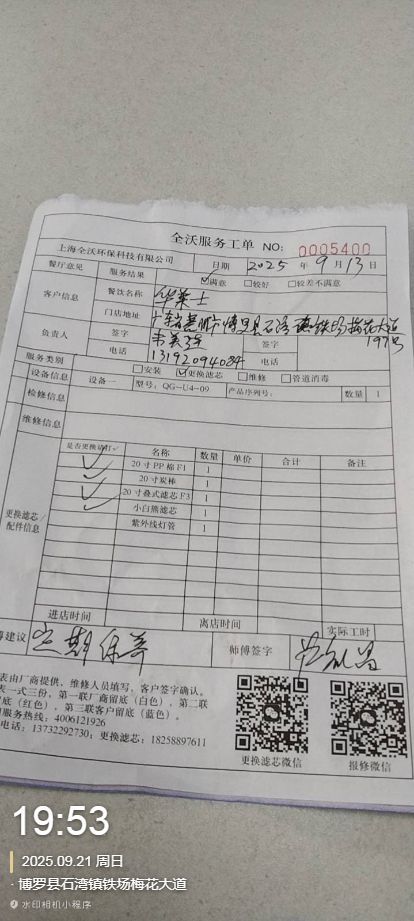 全沃服务工单 NO: 0005400
上海全沃环保科技有限公司 日期 2025 年 9 月 13 日
餐厅意见 服务结果 ☑满意 □较好 □较差不满意
客户信息 餐饮名称 华莱士
门店地址 广东省惠州市博罗县石湾镇铁场梅花大道
197号
负责人 签字 签字
电话 13192094084 电话
服务类别 □安装 ☑更换滤芯 □维修 □管道消毒
设备信息 设备一 型号: QG-U4-09 产品序列号: 数量 1
检修信息
维修信息
更换滤芯/配件信息
是否更换请打√ 名称 数量 单价 合计 备注
√ 20寸PP棉F1 1
20寸炭棒 1
√ 20寸叠式滤芯F3 1
√ 小白熊滤芯 1
紫外线灯管 1
进店时间 离店时间 实际工时
建议 定期保养 师傅签字
表由厂商提供、维修人员填写、客户签字确认。
表一式三份,第一联厂商留底(白色),第二联
底(红色),第三联客户留底(蓝色)。
服务热线: 4006121926
电话: 13732292730; 更换滤芯: 18258897611
更换滤芯微信 报修微信
19:53
2025.09.21 周日
· 博罗县石湾镇铁场梅花大道
水印相机小程序